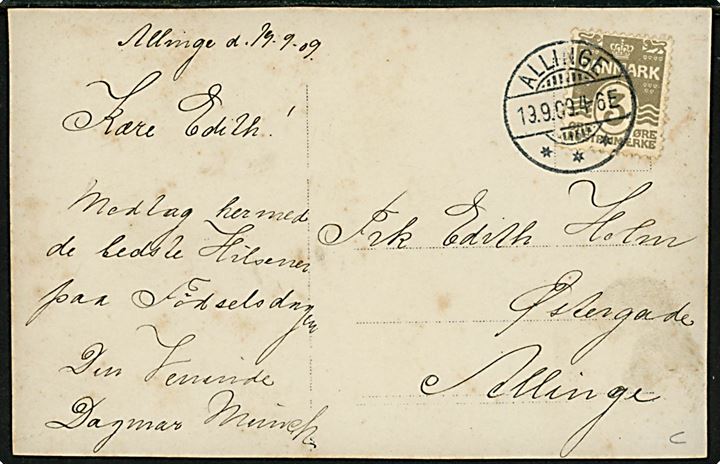 Allinge d. 19-9-09
Kære Edith!
Modtag hermed
de bedste Hilsener
paa Fødselsdagen
Din Veninde
Dagmar Münch
ALLINGE
13.9.09.4-6E
DANMARK
3
ØRE
Frk Edith Holm
Østergade
Allinge
C